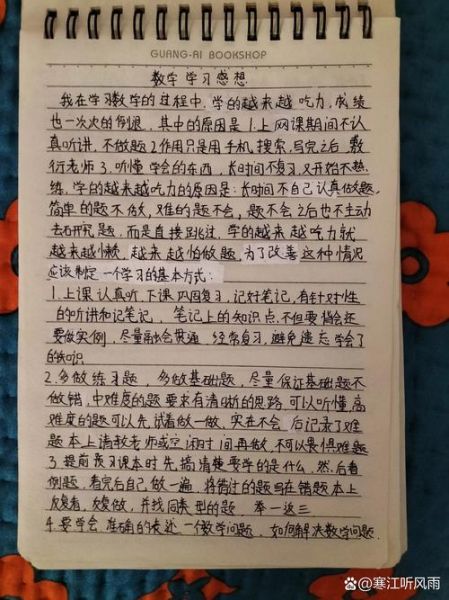 GUANG-AI BOOKSHOP
数学学习感想
我在学习数学的过程中,学的越来越吃力,成绩
也一次次的倒退,其中的原因是1.上网课期间不认
真听讲,不做题2.作用只是用手机搜索,写完之后敷
衍老师3.听懂学会的东西,长时间不复习又开始不熟
练,学的越来越吃力的原因是:长时间不自己认真做题,
简单的题不做,难的题不会,题不会之后也不主动
去研究题,而是直接跳过,学的越来越吃力就
越来越懒,越来越怕做题,为了改善这种情况
应该制定一个学习的基本方式:
1.上课认真听,下课巩固复习,记好笔记,有针对性
的听讲和记笔记,笔记上的知识点不但要搞会还
要做实例,尽量融会贯通,经常复习,避免遗忘学会了
的知识
2.多做练习题,多做基础题,尽量保证基础题不
做错,中难度的题要求有清晰的思路,可以听懂,高
难度的题可以先试着做一做,实在不会,后记录了难
题本上请教老师或空闲时间再做,不可以畏惧难题
3.提前预习课本时先搞清楚要学的是什么,然后看
例题,看完后自己做一遍,将错过的题写在错题本上
反复看,反复做,并找同类型的题,举一返三
4.要学会准确的表述一个数学问题,如何解决数学问题.
@寒江听风雨